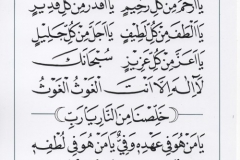 يَا أَرْحَمَ مِنْ كُلِّ رَحِيمٍ يَا أَقْدَرَ مِنْ كُلِّ قَدِيرٍ
يَا أَلْطَفَ مِنْ كُلِّ لَطِيفٍ يَا أَجَلَّ مِنْ كُلِّ جَلِيلٍ
يَا أَعَزَّ مِنْ كُلِّ عَزِيزٍ سُبْحَانَكَ
لَا إِلٰهَ إِلَّا أَنْتَ الْغَوْثُ الْغَوْثُ
خَلِّصْنَا مِنَ النَّارِ يَا رَبِّ
يَا مَنْ هُوَ فِي عَهْدِهِ وَفِيٌّ يَا مَنْ هُوَ فِي لُطْفِهِ